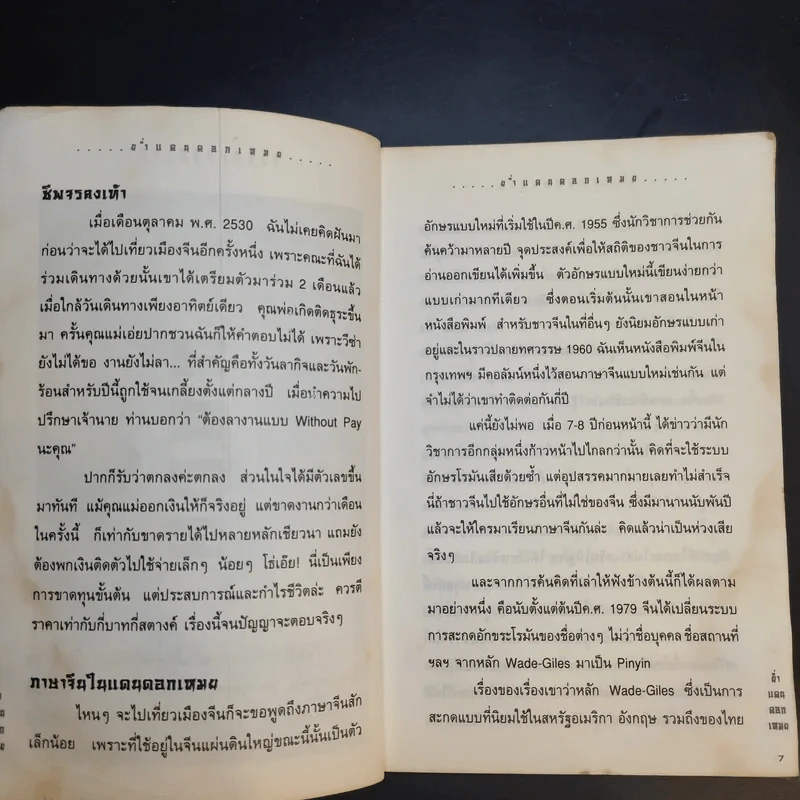 .....ย่ำแดนดอกเหมย.....
ชีพจรลงเท้า
เมื่อเดือนตุลาคม พ.ศ. 2530 ฉันไม่เคยคิดฝันมา
ก่อนว่าจะได้ไปเที่ยวเมืองจีนอีกครั้งหนึ่ง เพราะคณะที่ฉันได้
ร่วมเดินทางด้วยนั้นเขาได้เตรียมตัวมาร่วม 2 เดือนแล้ว
เมื่อใกล้วันเดินทางเพียงอาทิตย์เดียว คุณพ่อเกิดติดธุระขึ้น
มา ครั้นคุณแม่เอ่ยปากชวนฉันก็ให้คำตอบไม่ได้ เพราะวีซ่า
ยังไม่ได้ขอ งานยังไม่ลา... ที่สำคัญคือทั้งวันลากิจและวันพัก-
ร้อนสำหรับปีนี้ถูกใช้จนเกลี้ยงตั้งแต่กลางปี เมื่อนำความไป
ปรึกษาเจ้านาย ท่านบอกว่า “ต้องลางานแบบ Without Pay
นะคุณ”
ปากก็รับว่าตกลงค่ะตกลง ส่วนในใจได้มีตัวเลขขึ้น
มาทันที แม้คุณแม่ออกเงินให้ก็จริงอยู่ แต่ขาดงานกว่าเดือน
ในครั้งนี้ ก็เท่ากับขาดรายได้ไปหลายหลักเชียวนา แถมยัง
ต้องพกเงินติดตัวไปใช้จ่ายเล็กๆ น้อยๆ โธ่เอ๊ย! นี่เป็นเพียง
การขาดทุนขั้นต้น แต่ประสบการณ์และกำไรชีวิตล่ะ ควรตี
ราคาเท่ากับกี่บาทกี่สตางค์ เรื่องนี้จนปัญญาจะตอบจริงๆ
ภาษาจีนในแดนดอกเหมย
ไหนๆ จะไปเที่ยวเมืองจีนก็จะขอพูดถึงภาษาจีนสัก
เล็กน้อย เพราะที่ใช้อยู่ในจีนแผ่นดินใหญ่ขณะนี้นั้นเป็นตัว
ย่ำ
แดน
ดอก
เหมย
.....ย่ำแดนดอกเหมย.....
อักษรแบบใหม่ที่เริ่มใช้ในปีค.ศ. 1955 ซึ่งนักวิชาการช่วยกัน
ค้นคว้ามาหลายปี จุดประสงค์เพื่อให้สถิติของชาวจีนในการ
อ่านออกเขียนได้เพิ่มขึ้น ตัวอักษรแบบใหม่นี้เขียนง่ายกว่า
แบบเก่ามากทีเดียว ซึ่งตอนเริ่มต้นนั้นเขาสอนในหน้า
หนังสือพิมพ์ สำหรับชาวจีนในที่อื่นๆ ยังนิยมอักษรแบบเก่า
อยู่และในราวปลายทศวรรษ 1960 ฉันเห็นหนังสือพิมพ์จีนใน
กรุงเทพฯ มีคอลัมน์หนึ่งไว้สอนภาษาจีนแบบใหม่เช่นกัน แต่
จำไม่ได้ว่าเขาทำติดต่อกันกี่ปี
แค่นี้ยังไม่พอ เมื่อ 7-8 ปีก่อนหน้านี้ ได้ข่าวว่ามีนัก
วิชาการอีกกลุ่มหนึ่งก้าวหน้าไปไกลกว่านั้น คิดที่จะใช้ระบบ
อักษรโรมันเสียด้วยซ้ำ แต่อุปสรรคมากมายเลยทำไม่สำเร็จ
นี่ถ้าชาวจีนไปใช้อักษรอื่นที่ไม่ใช่ของจีน ซึ่งมีมานานนับพันปี
แล้วจะให้ใครมาเรียนภาษาจีนกันล่ะ คิดแล้วน่าเป็นห่วงเสีย
จริงๆ
และจากการค้นคิดที่เล่าให้ฟังข้างต้นนี้ก็ได้ผลตาม
มาอย่างหนึ่ง คือนับตั้งแต่ต้นปีค.ศ. 1979 จีนได้เปลี่ยนระบบ
การสะกดอักขระโรมันของชื่อต่างๆ ไม่ว่าชื่อบุคคล ชื่อสถานที่
ฯลฯ จากหลัก Wade-Giles มาเป็น Pinyin
เรื่องของเรื่องเขาว่าหลัก Wade-Giles ซึ่งเป็นการ
สะกดแบบที่นิยมใช้ในสหรัฐอเมริกา อังกฤษ รวมถึงของไทย
ย่ำ
แดน
ดอก
เหมย
7